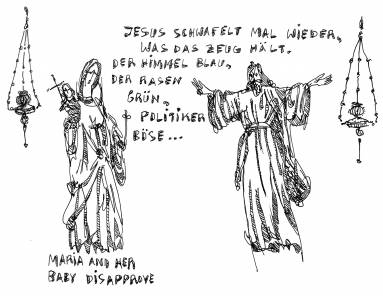 JESUS SCHWAFELT MAL WIEDER,
WAS DAS ZEUG HÄLT.
DER HIMMEL BLAU,
DER RASEN
GRÜN,
& POLITIKER
BÖSE...
MARIA AND HER
BABY DISAPPROVE